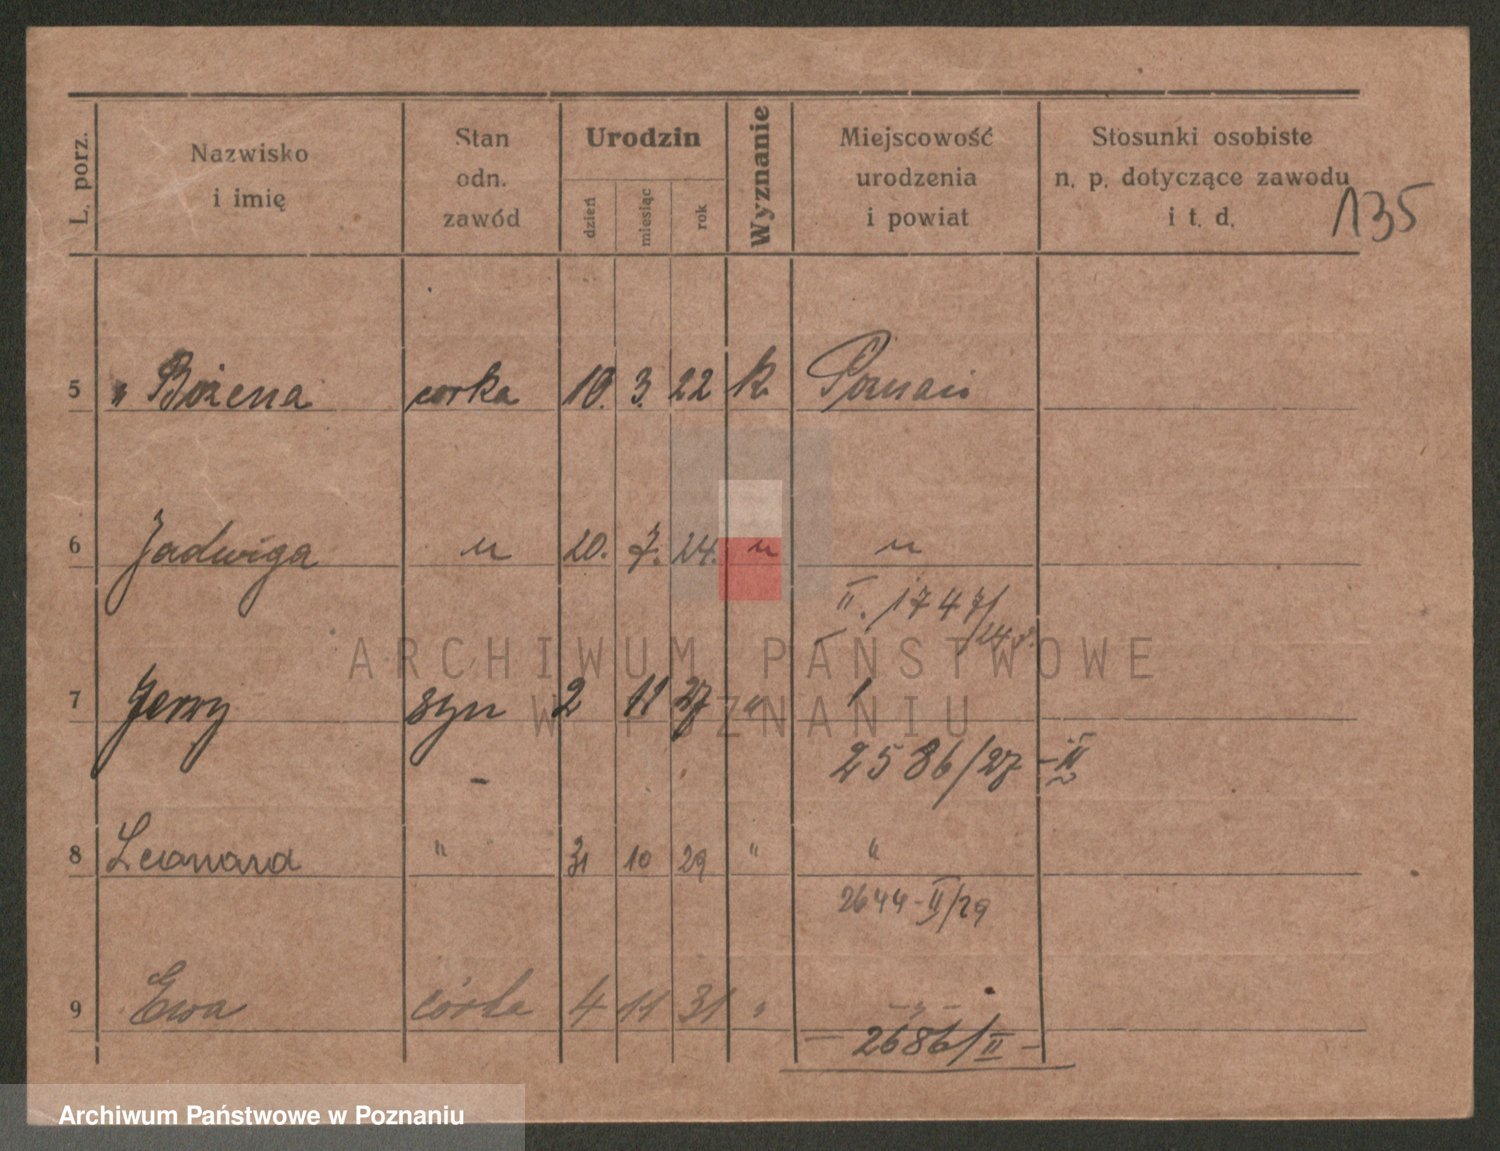 L. porz.
Nazwisko i imię
Stan odn. zawód
Urodzin
dzień miesiąc rok
Wyznanie
Miejscowość urodzenia i powiat
Stosunki osobiste n. p. dotyczące zawodu i t. d.
135
5 " Bożena corka 10. 3. 22 k Poznań
6 Jadwiga " 20. 7. 24. " "
II. 1747/24
7 Jerzy syn 2 11 27 " "
2586/27 - II
8 Leonard " 31 10 29 " "
2644-II/29
9 Ewa córka 4 11 31 " - " -
- 2686/II -
ARCHIWUM PAŃSTWOWE
W POZNANIU
Archiwum Państwowe w Poznaniu